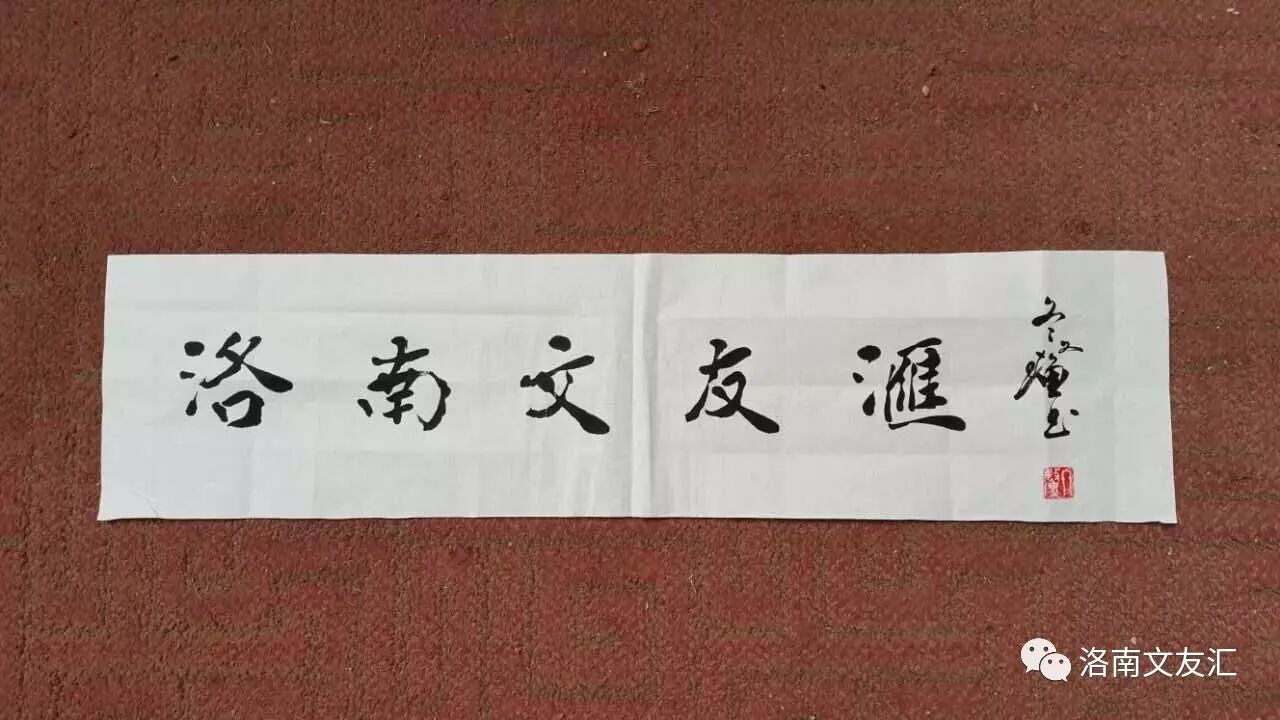 洛南文友滙
洛南文友汇